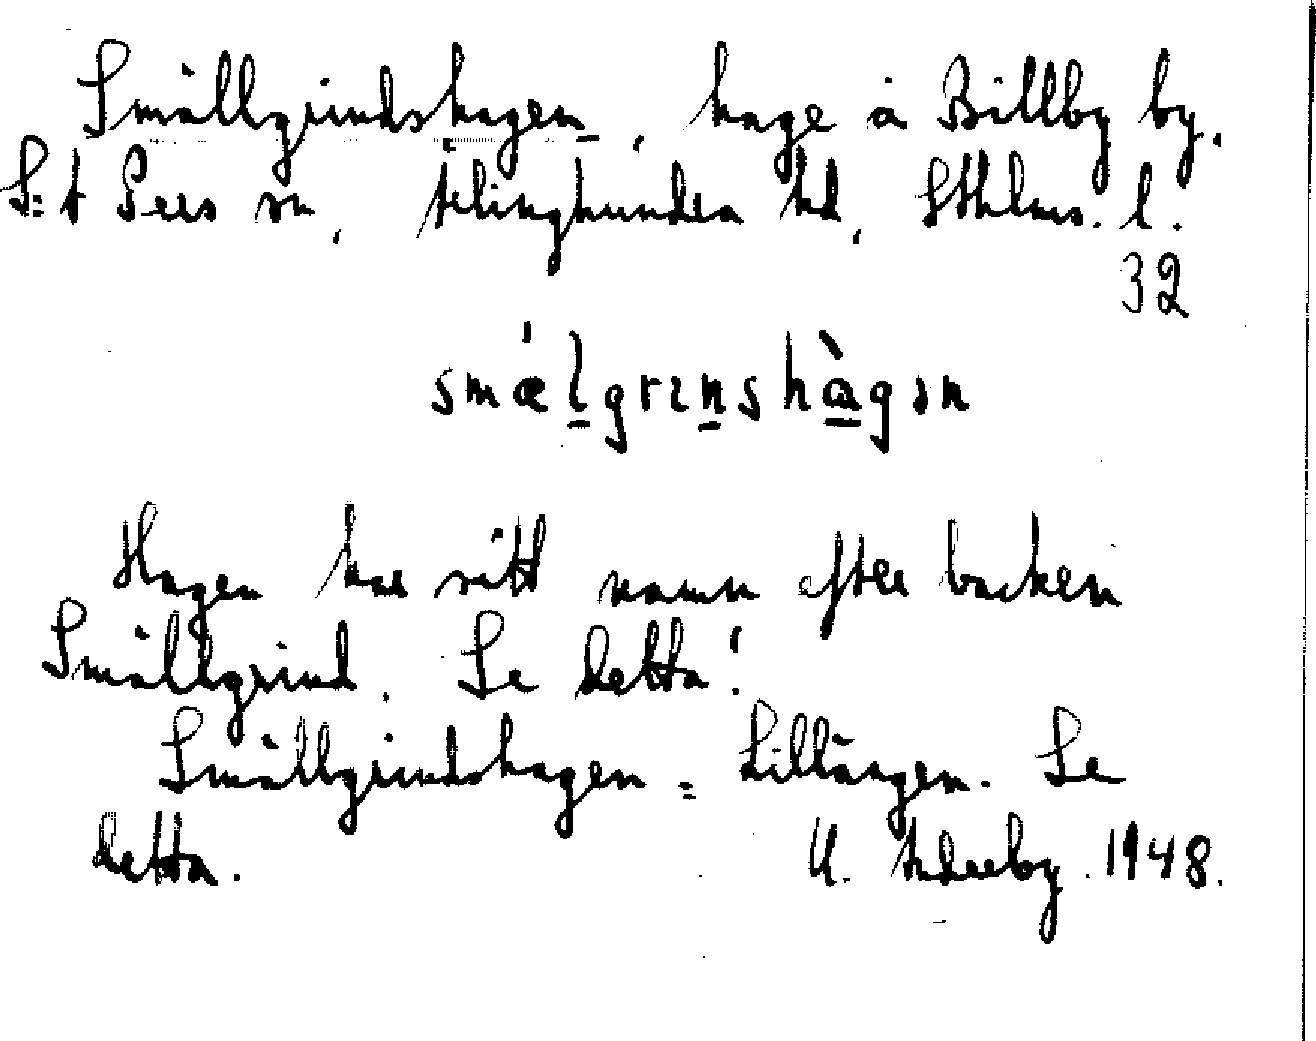 Smällgrindshagen, hage å Billby by.
S:t Pers sn, Ärlinghundra hd, Sthlms. l.
32
smæ̀l̠grɪn̠shɑ̠̀gən
Hagen har sitt namn efter backen
Smällgrind. Se detta!
Smällgrindshagen = Lillängen. Se
detta. U. Äderby. 1948.